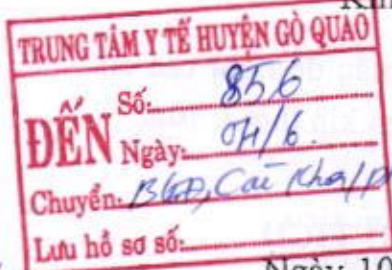 TRUNG TÂM Y TẾ HUYỆN GÒ QUAO
ĐẾN
Số: 856
Ngày: 04/6.
Chuyển: BGĐ, Các Khoa/p
Lưu hồ sơ số:
Ngày 10